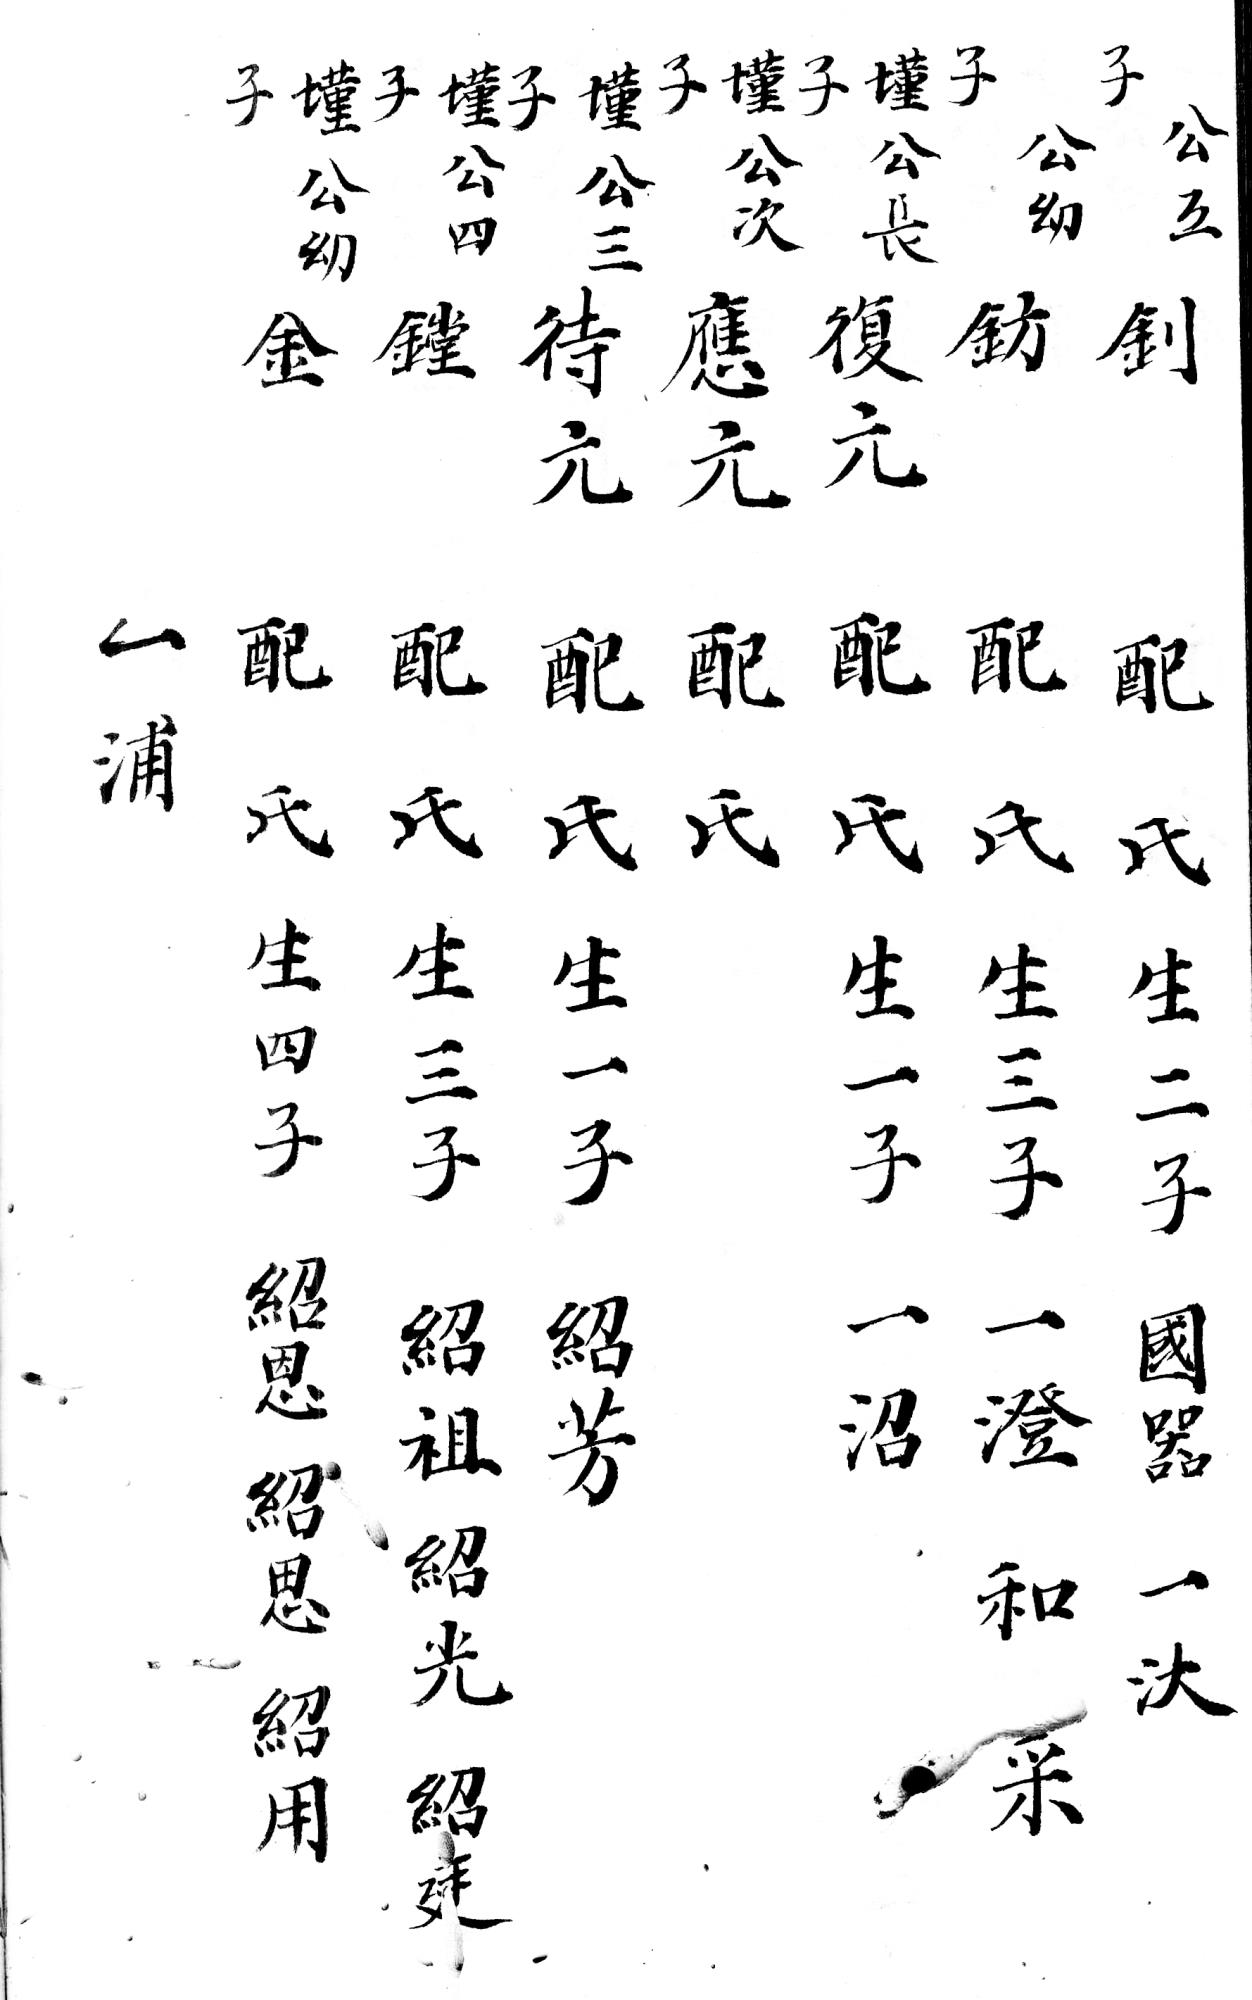 公五子 釗 配 氏 生二子 國器 一汏
公幼子 鈁 配 氏 生三子 一澄 和 采
墐公長子 復元 配 氏 生一子 一沼
墐公次子 應元 配 氏
墐公三子 待元 配 氏 生一子 紹芳
墐公四子 鏜 配 氏 生三子 紹祖 紹光 紹
墐公幼子 金 配 氏 生四子 紹恩 紹思 紹用
一浦